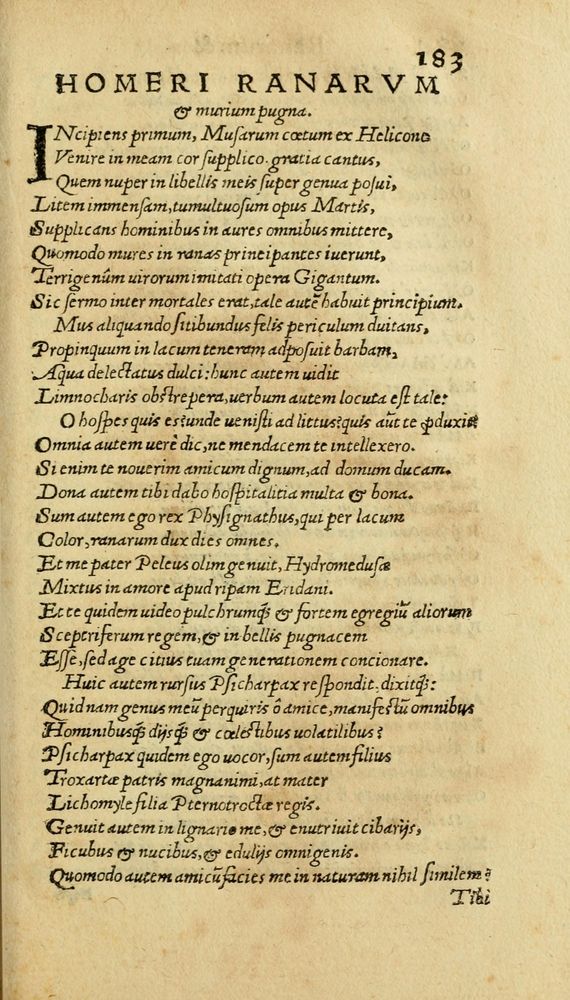 183
HOMERI RANARVM
& murium pugna.
INcipiens primum, Musarum cœtum ex Helicone
Venire in meam cor supplico. gratia cantus,
Quem nuper in libellis meis super genua posui,
Litem immensam, tumultuosum opus Martis,
Supplicans hominibus in aures omnibus mittere,
Quomodo mures in ranas principantes iuerunt,
Terrigenûm uirorum imitati opera Gigantum.
Sic sermo inter mortales erat, tale autē habuit principium.
Mus aliquando sitibundus felis periculum duitans,
Propinquum in lacum teneram adposuit barbam,
Aqua delectatus dulci: hunc autem uidit
Limnocharis obstrepera, uerbum autem locuta est tale:
O hospes quis es? unde uenisti ad littus? quis aut te ꝓduxit?
Omnia autem uerè dic, ne mendacem te intellexero.
Si enim te nouerim amicum dignum, ad domum ducam.
Dona autem tibi dabo hospitalitia multa & bona.
Sum autem ego rex Physignathus, qui per lacum
Color, ranarum dux dies omnes.
Et me pater Peleus olim genuit, Hydromedusæ
Mixtus in amore apud ripam Eridani.
Et te quidem uideo pulchrumq́; & fortem egregiū aliorum
Sceptriferum regem, & in bellis pugnacem
Esse, sed age citius tuam generationem concionare.
Huic autem rursus Psicharpax respondit, dixitq́;:
Quid nam genus meū perquiris ô amice, manifestū omnibus
Hominibusq́; dijsq́; & cœlestibus uolatilibus?
Psicharpax quidem ego uocor, sum autem filius
Troxartæ patris magnanimi, at mater
Lichomyle filia Pternotroctæ regis.
Genuit autem in lignario me, & enutriuit cibarijs,
Ficubus & nucibus, & edulijs omnigenis.
Quomodo autem amicū facies me in naturam nihil similem?
Tibi